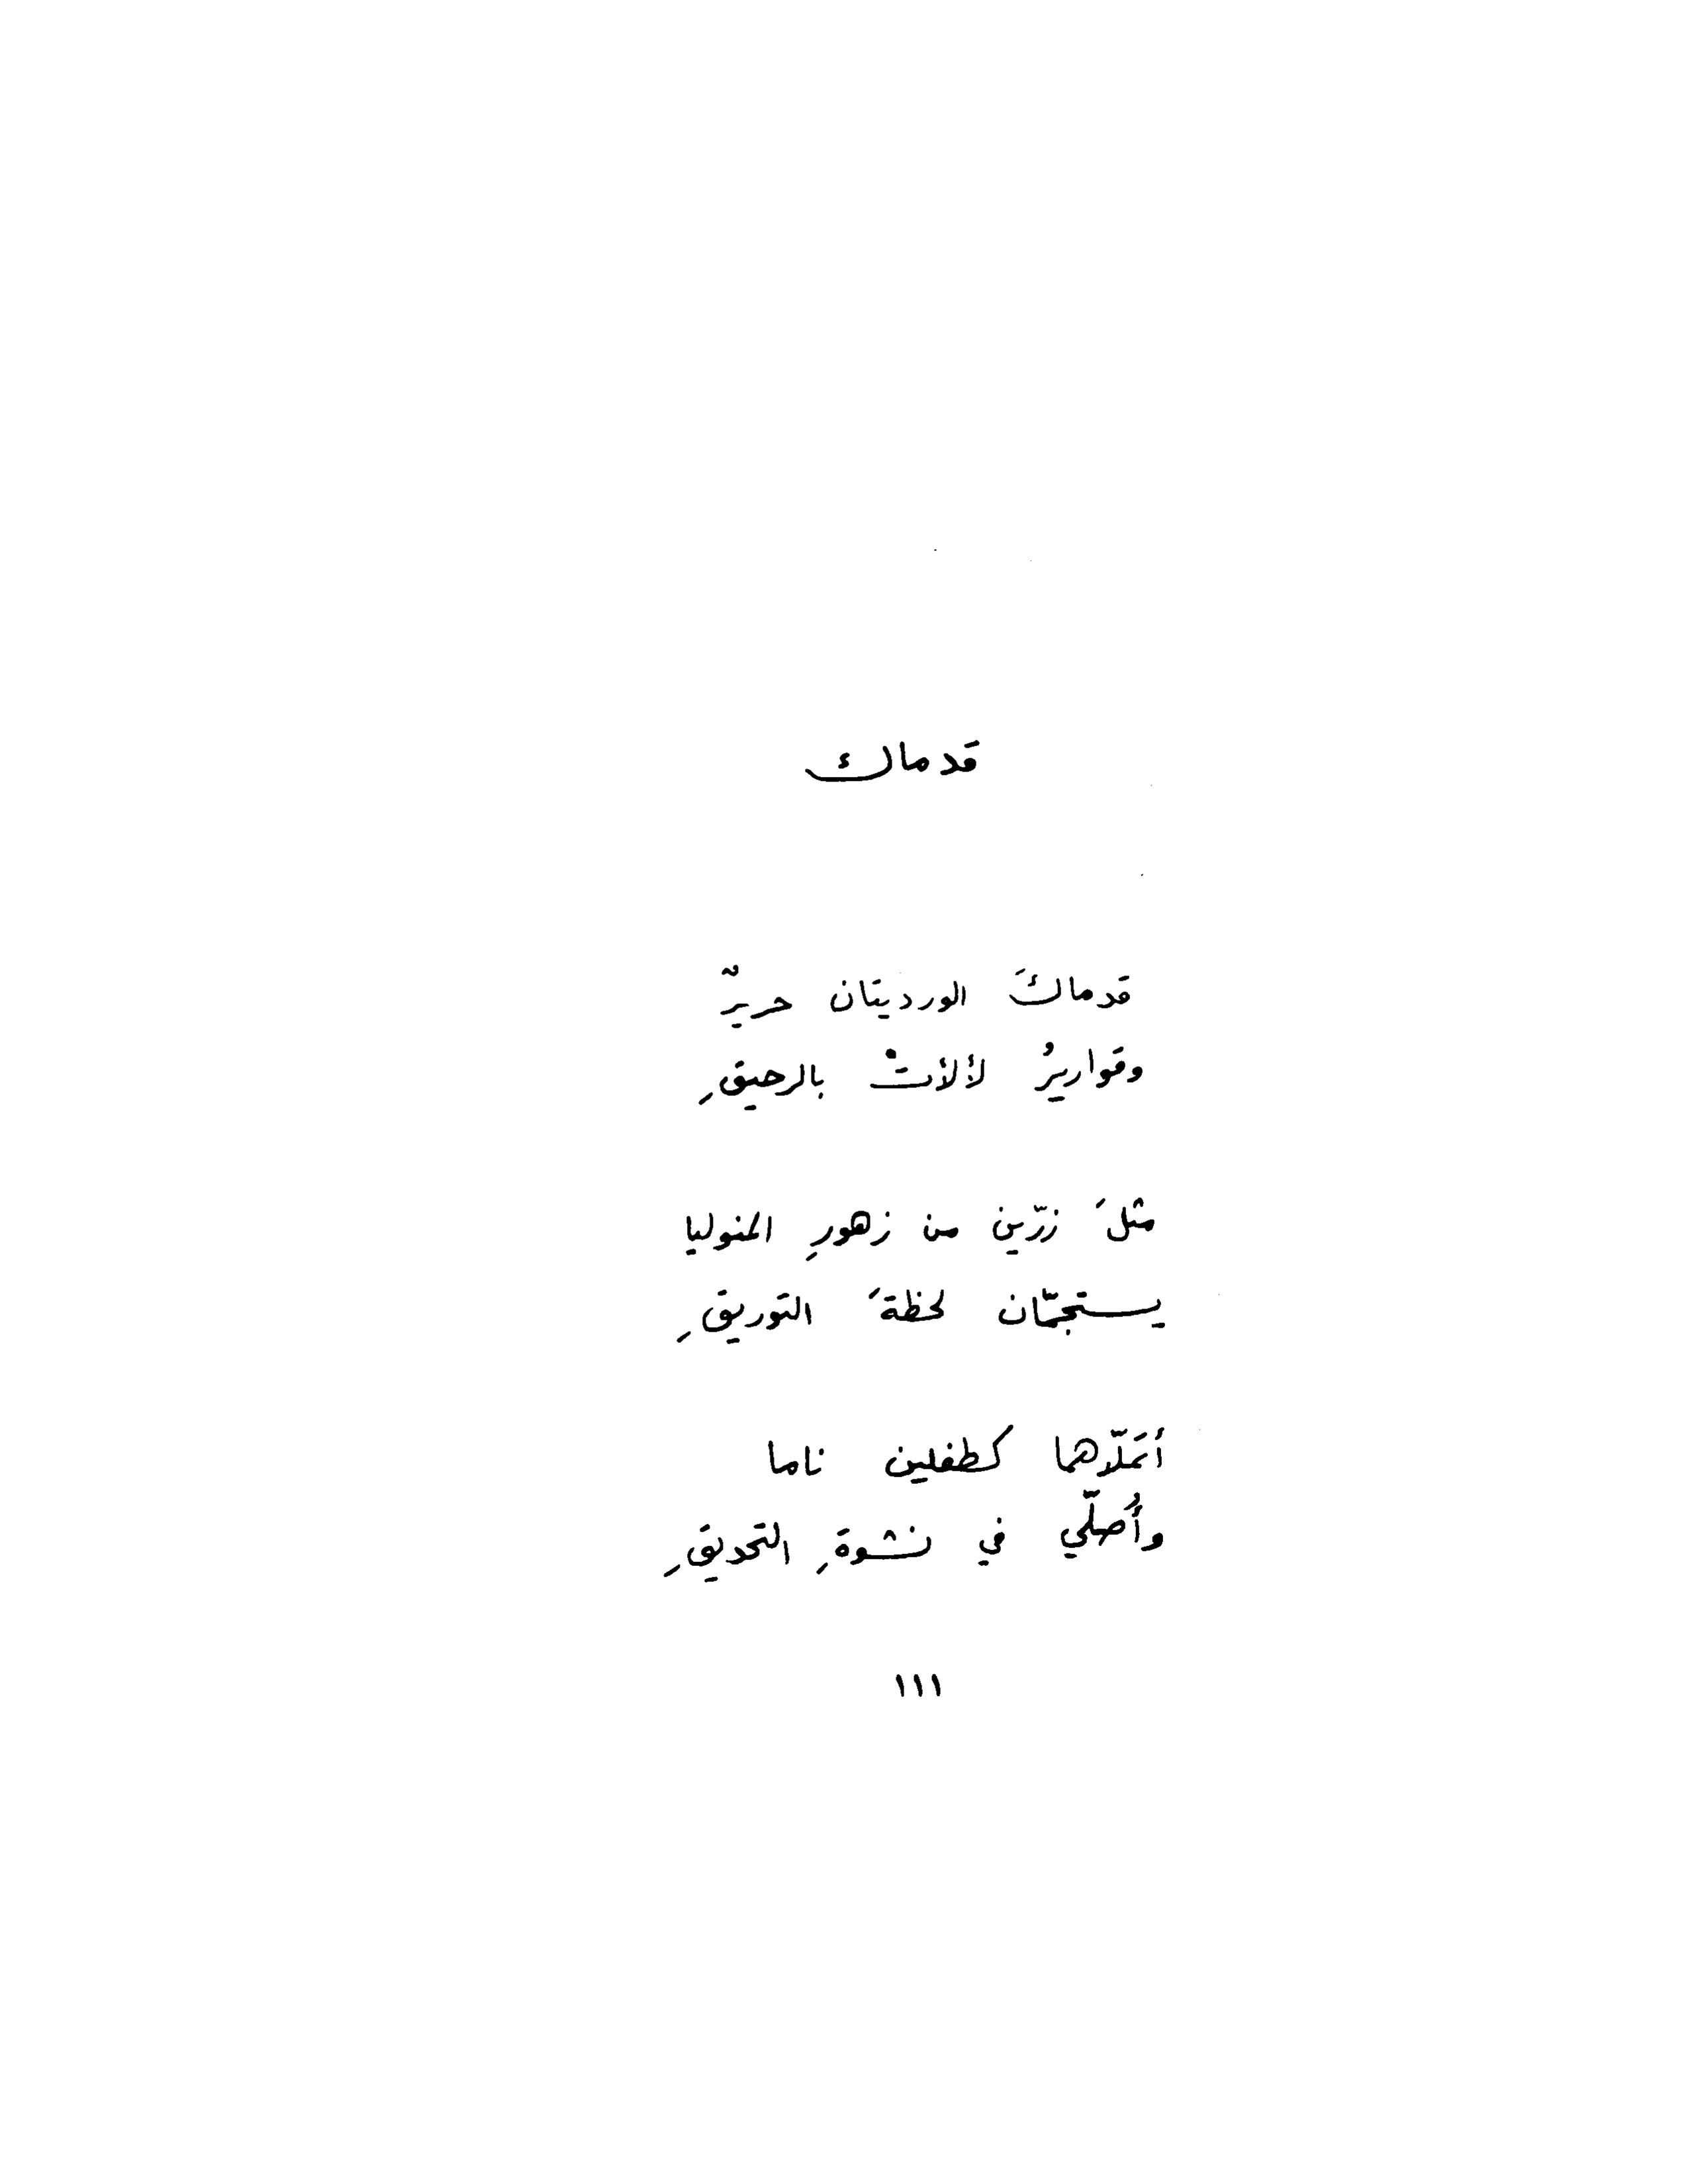 قدماك
قدماكَ الورديتان حريرٌ
وقواريرُ لألأتْ بالرحيقِ
مثلَ زرّين من زهورِ المنوليا
يستجمّان لحظةَ التوريقِ
أتملّاهما كطفلين ناما
وأُصلّي في نشوةِ التحديقِ
١١١